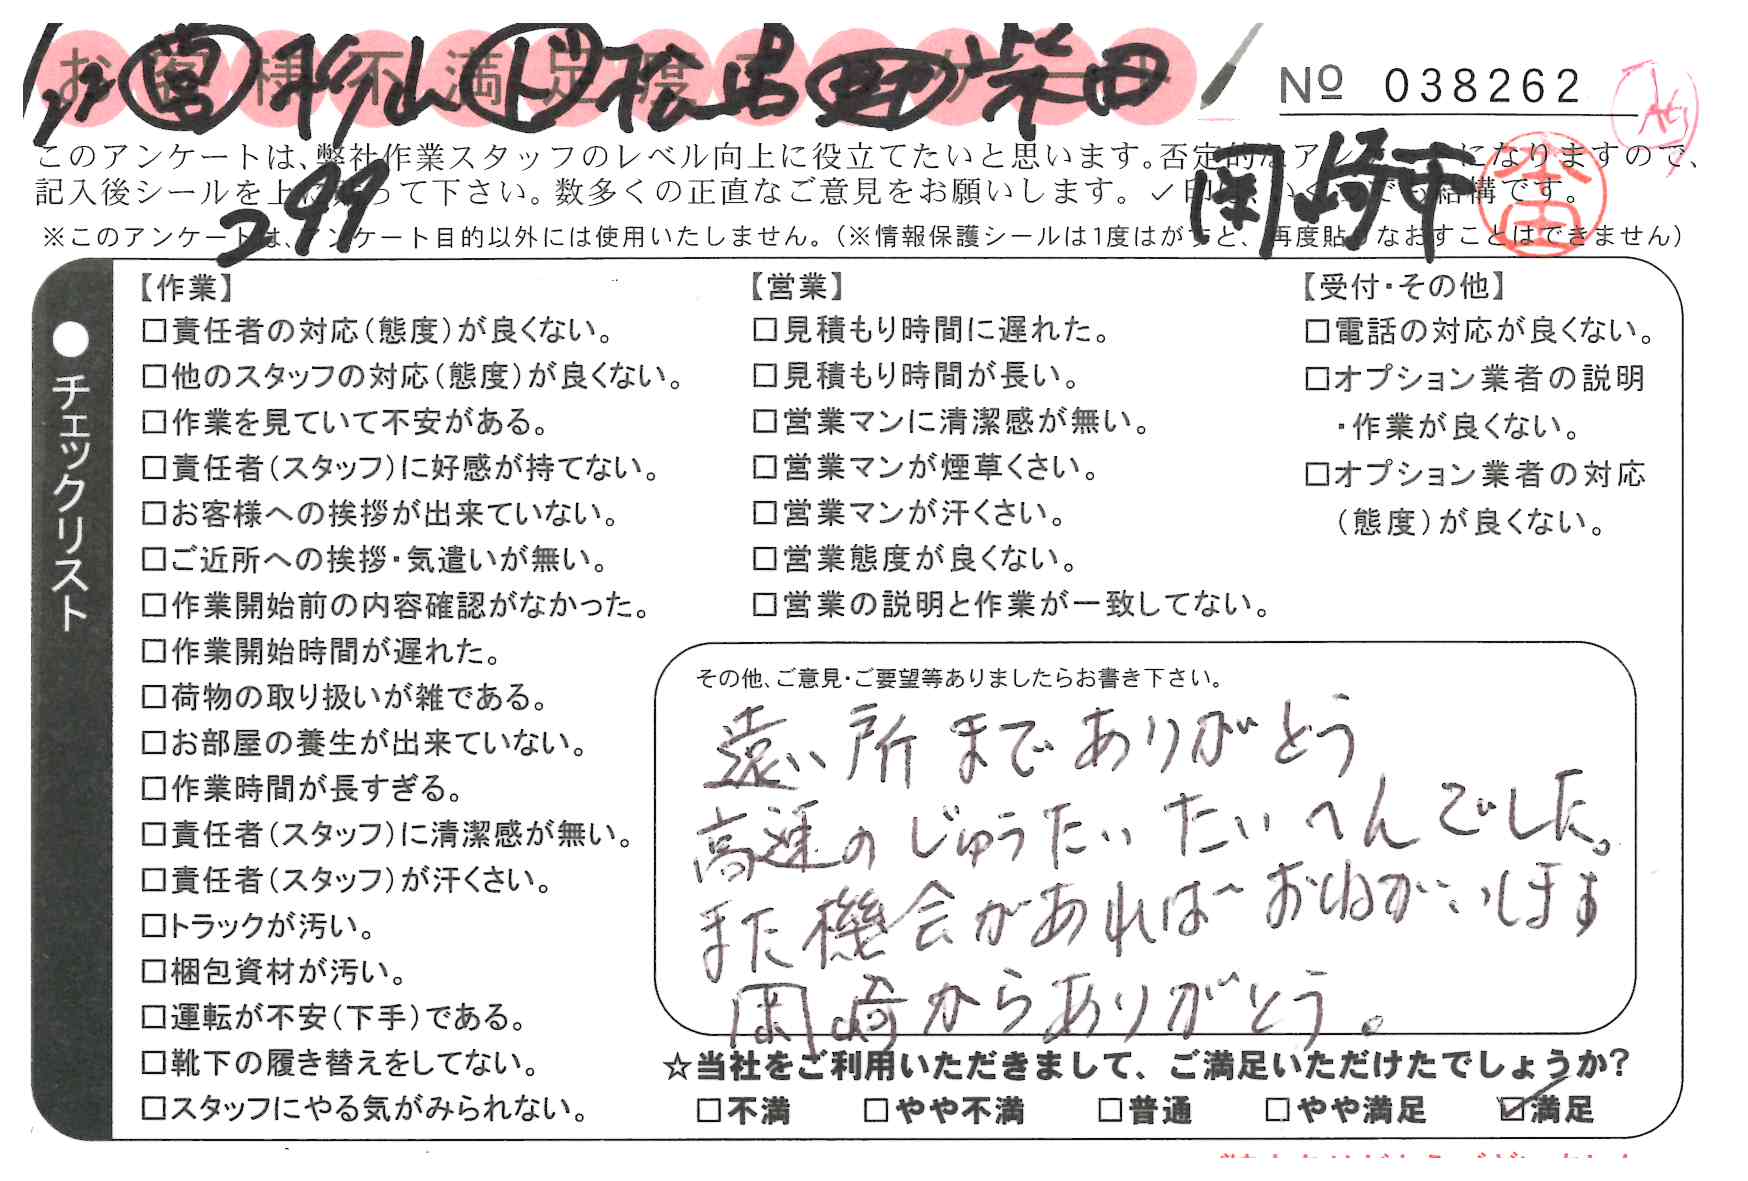 お客様不満足度アンケート
営 杉山 ド 松岩 助 柴田
№ 038262
299
岡崎市
本田
このアンケートは、弊社作業スタッフのレベル向上に役立てたいと思います。否定的なアンケートになりますので、
記入後シールを上に貼って下さい。数多くの正直なご意見をお願いします。✓印は、いくつでも結構です。
※このアンケートは、アンケート目的以外には使用いたしません。(※情報保護シールは1度はがすと、再度貼りなおすことはできません)
●チェックリスト
【作業】
□責任者の対応(態度)が良くない。
□他のスタッフの対応(態度)が良くない。
□作業を見ていて不安がある。
□責任者(スタッフ)に好感が持てない。
□お客様への挨拶が出来ていない。
□ご近所への挨拶・気遣いが無い。
□作業開始前の内容確認がなかった。
□作業開始時間が遅れた。
□荷物の取り扱いが雑である。
□お部屋の養生が出来ていない。
□作業時間が長すぎる。
□責任者(スタッフ)に清潔感が無い。
□責任者(スタッフ)が汗くさい。
□トラックが汚い。
□梱包資材が汚い。
□運転が不安(下手)である。
□靴下の履き替えをしてない。
□スタッフにやる気がみられない。
【営業】
□見積もり時間に遅れた。
□見積もり時間が長い。
□営業マンに清潔感が無い。
□営業マンが煙草くさい。
□営業マンが汗くさい。
□営業態度が良くない。
□営業の説明と作業が一致してない。
【受付・その他】
□電話の対応が良くない。
□オプション業者の説明
・作業が良くない。
□オプション業者の対応
(態度)が良くない。
その他、ご意見・ご要望等ありましたらお書き下さい。
遠い所までありがとう
高速のじゅうたいたいへんでした。
また機会があればおねがいします
岡崎からありがとう。
☆当社をご利用いただきまして、ご満足いただけたでしょうか?
□不満 □やや不満 □普通 □やや満足 ☑満足